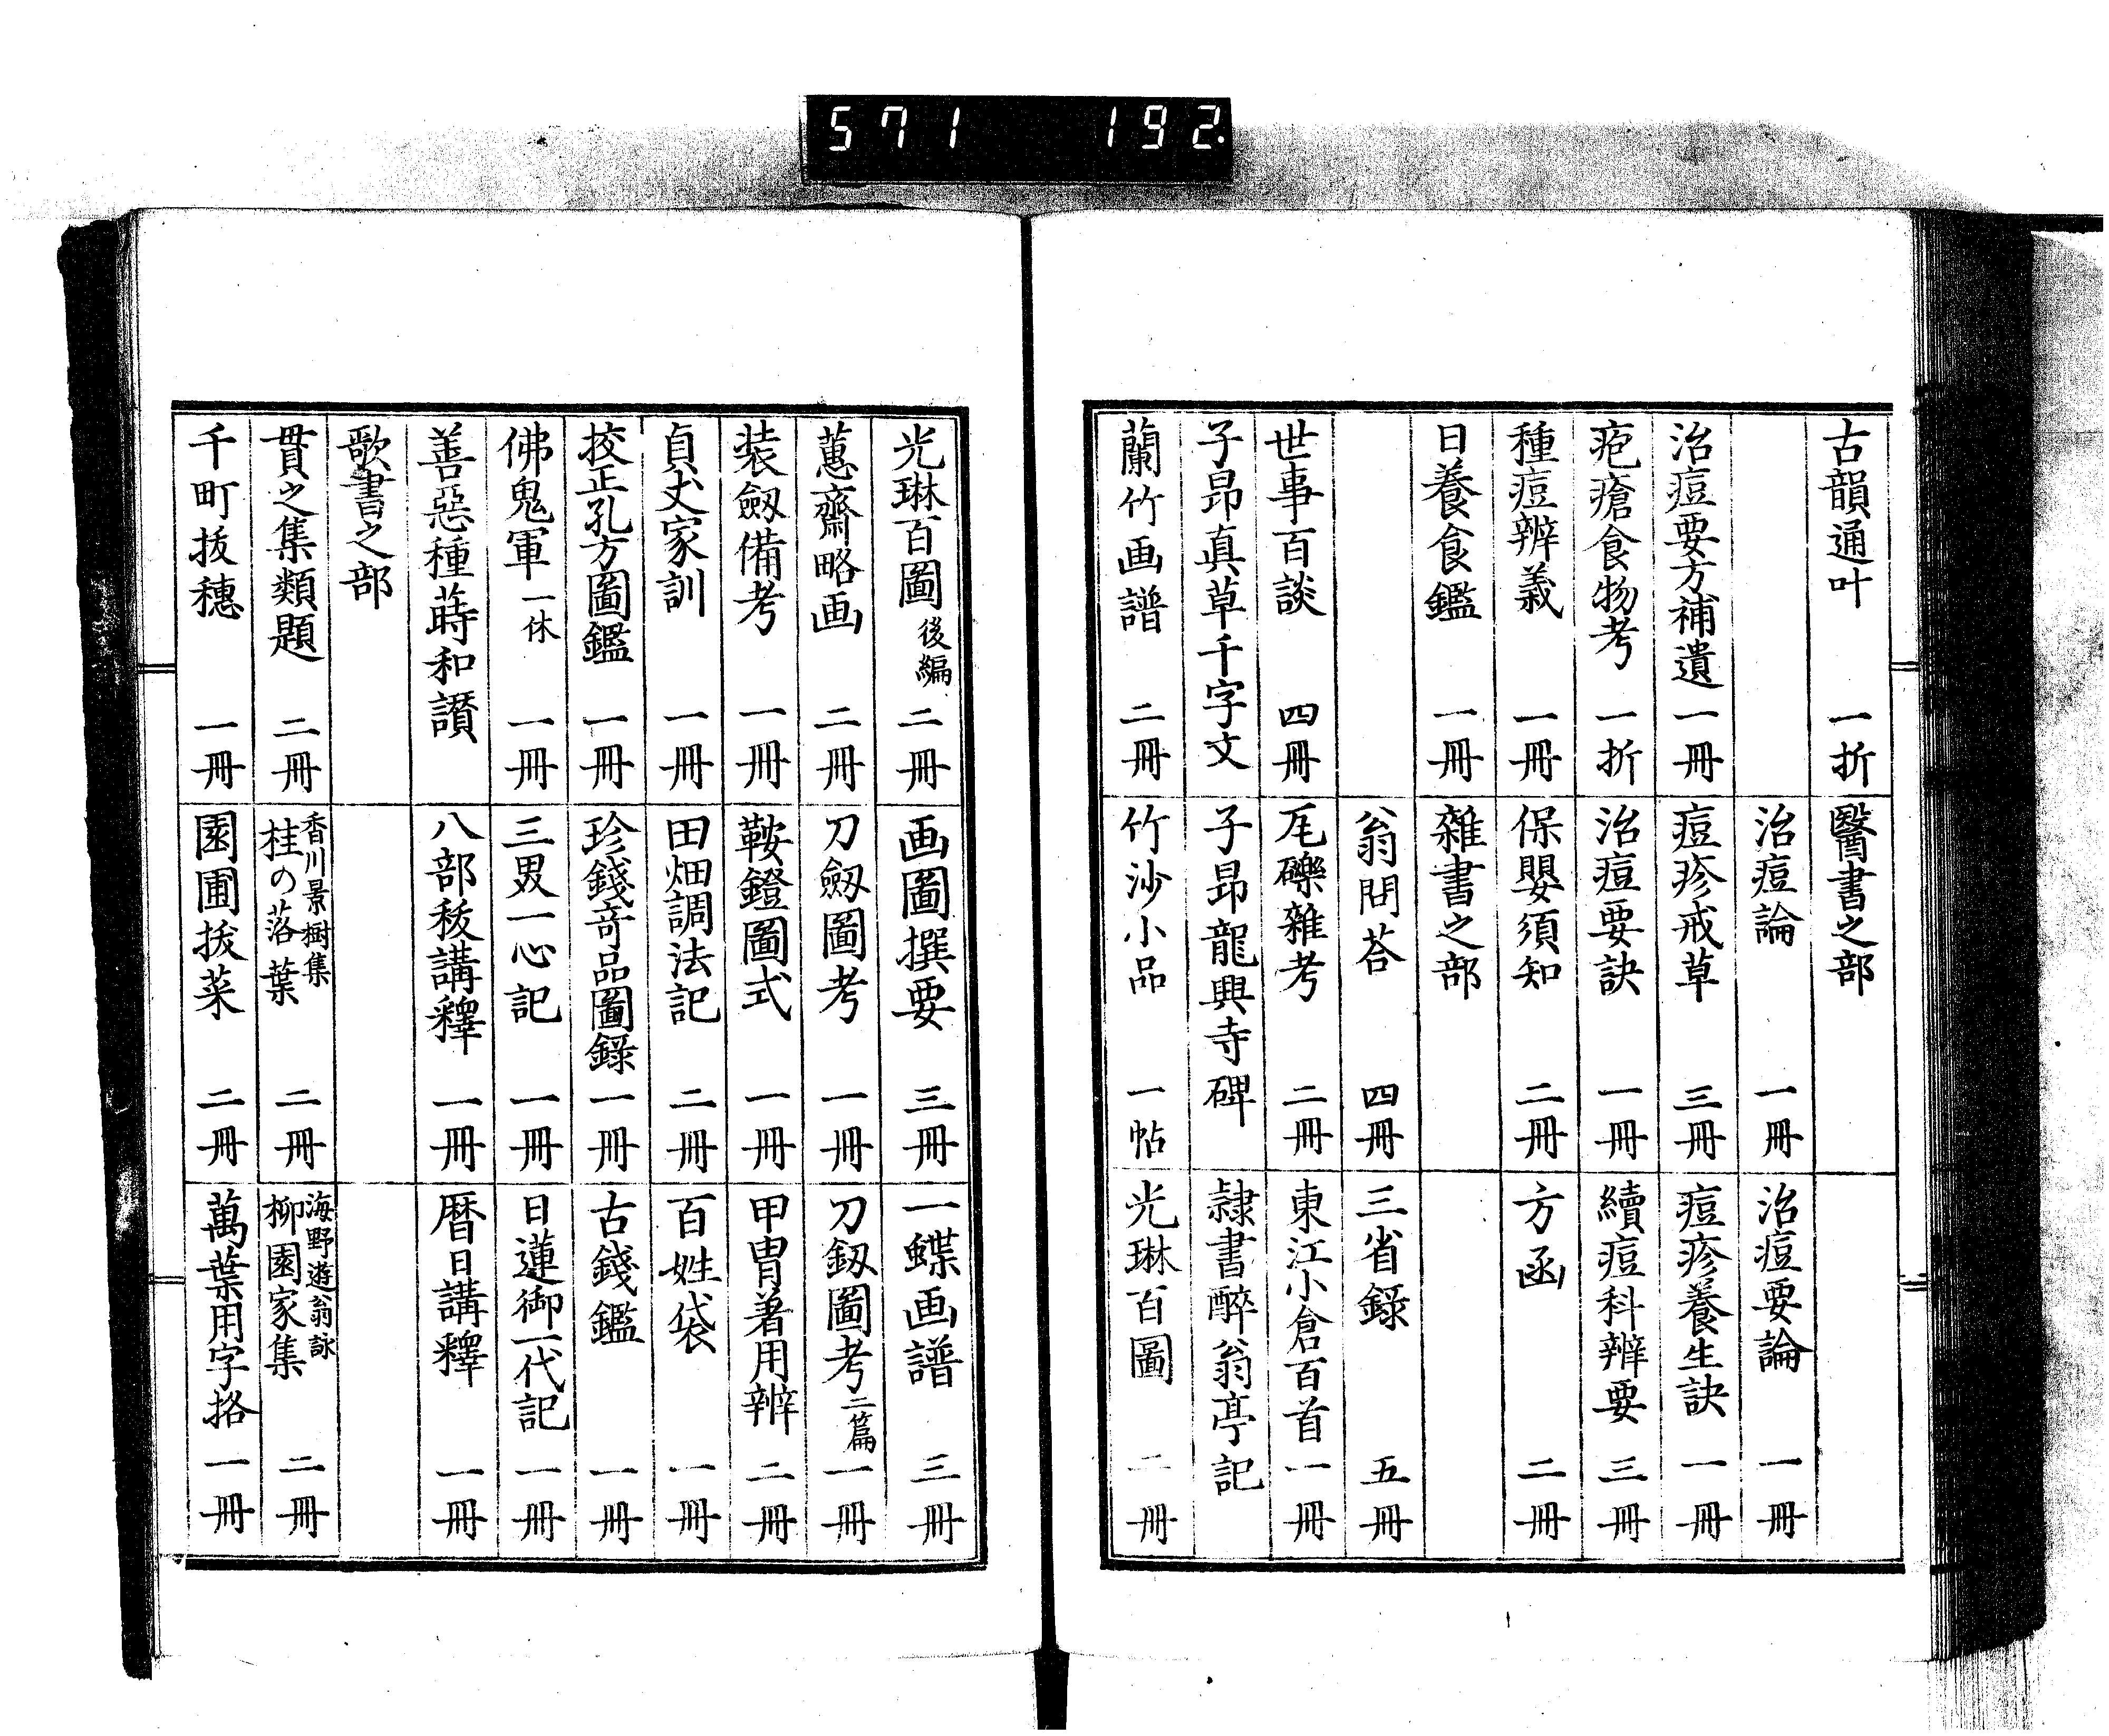 571 192.
古韻通叶 一折 醫書之部
治痘論 一冊 治痘要論 一冊
治痘要方補遺 一冊 痘疹戒草 三冊 痘疹養生訣 一冊
疱瘡食物考 一折 治痘要訣 一冊 續痘科辨要 三冊
種痘辨義 一冊 保嬰須知 二冊 方函 二冊
日養食鑑 一冊 雜書之部
翁問荅 四冊 三省録 五冊
世事百談 四冊 瓦礫雜考 二冊 東江小倉百首 一冊
子昂真草千字文 子昂龍興寺碑 隷書醉翁亭記
蘭竹画譜 二冊 竹沙小品 一帖 光琳百圖 二冊
光琳百圖 後編 二冊 画圖撰要 三冊 一蝶画譜 三冊
蕙齋略画 二冊 刀劔圖考 一冊 刀劔圖考 二篇 一冊
装劔備考 一冊 鞍鐙圖式 一冊 甲冑著用辨 二冊
貞丈家訓 一冊 田畑調法記 二冊 百姓袋 一冊
挍正孔方圖鑑 一冊 珍錢竒品圖録 一冊 古錢鑑 一冊
佛鬼軍 一休 一冊 三界一心記 一冊 日蓮御一代記 一冊
善惡種蒔和讃 八部秡講釋 一冊 暦日講釋 一冊
歌書之部
貫之集類題 二冊 香川景樹集 桂の落葉 二冊 海野遊翁詠 柳園家集 二冊
千町抜穗 一冊 園圃抜菜 二冊 萬葉用字挌 一冊